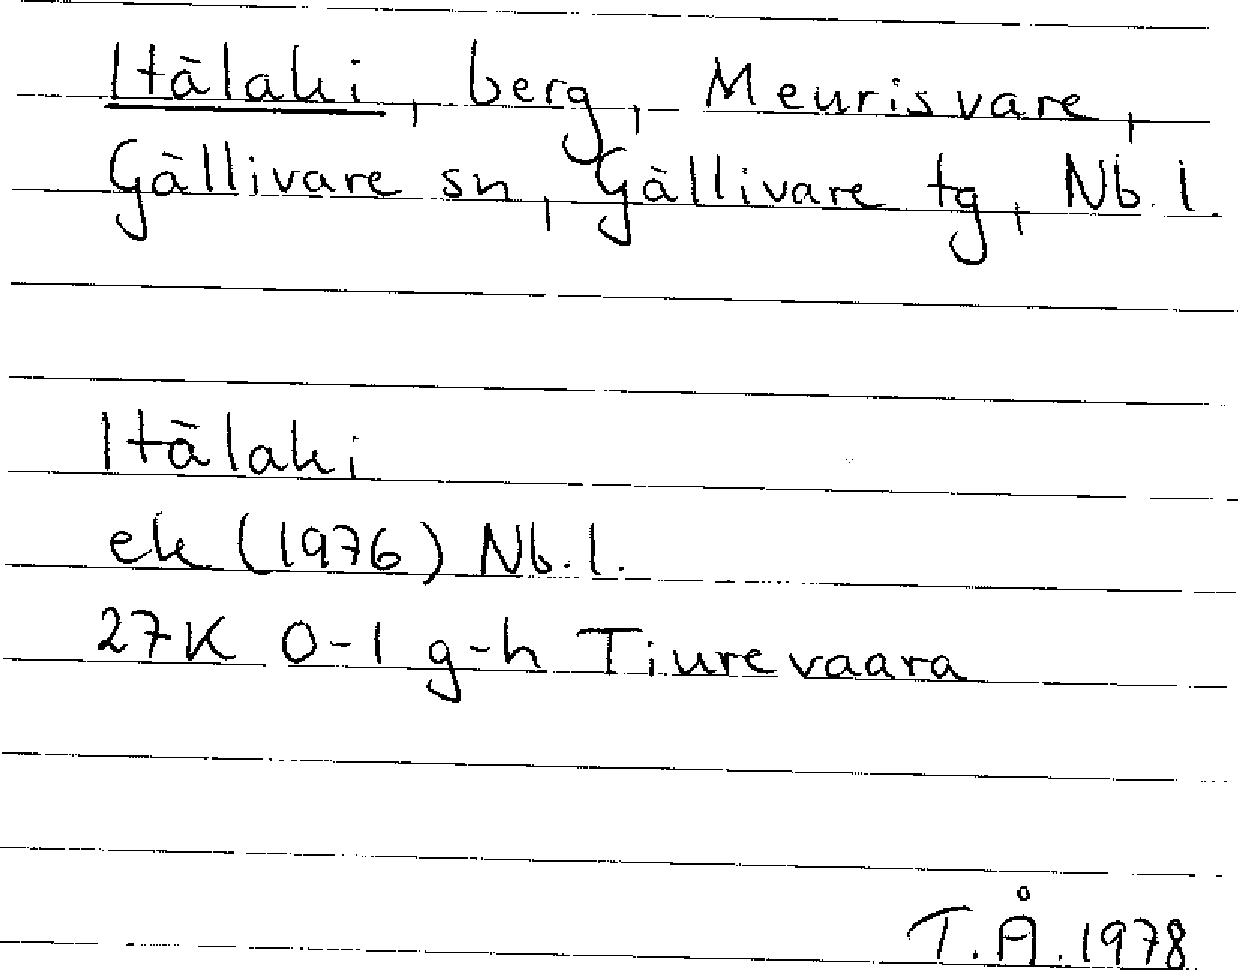 Itälaki, berg, Meurisvare,
Gällivare sn, Gällivare tg, Nb. l.
Itälaki
ek (1976) Nb. l.
27K 0-1 g-h Tiurevaara
T.Å. 1978